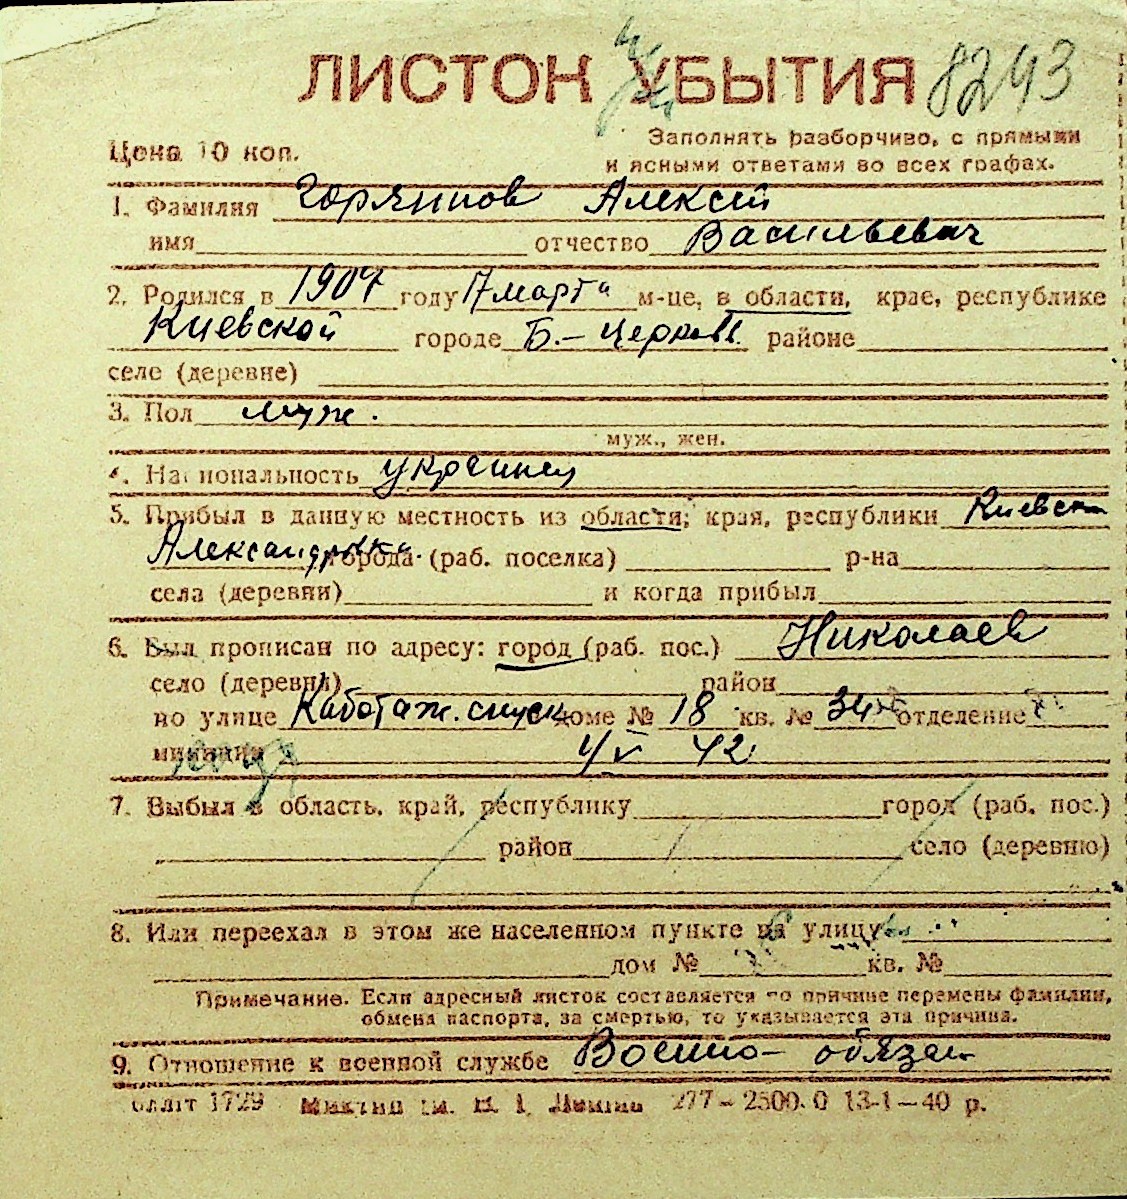 ЛИСТОК УБЫТИЯ 8243
Цена 10 коп.
Заполнять разборчиво, с прямыми
и ясными ответами во всех графах.
1. Фамилия Горяинов Алексей
имя отчество Васильевич
2. Родился в 1907 году 17 марта м-це, в области, крае, республике
Киевской городе Б.-Церковь районе
селе (деревне)
3. Пол муж.
муж., жен.
4. Национальность украинец
5. Прибыл в данную местность из области, края, республики Киевск
Александровка города (раб. поселка) р-на
села (деревни) и когда прибыл
6. Был прописан по адресу: город (раб. пос.) Николаев
село (деревня) район
по улице Каботаж. спуск доме № 18 кв. № 34 отделение
милиции 4/V 42
7. Выбыл в область, край, республику город (раб. пос.)
район село (деревню)
8. Или переехал в этом же населенном пункте на улицу
дом № кв. №
Примечание. Если адресный листок составляется по причине перемены фамилии,
обмена паспорта, за смертью, то указывается эта причина.
9. Отношение к военной службе Военно-обязан
1729 277–2500.0 13-1–40 р.